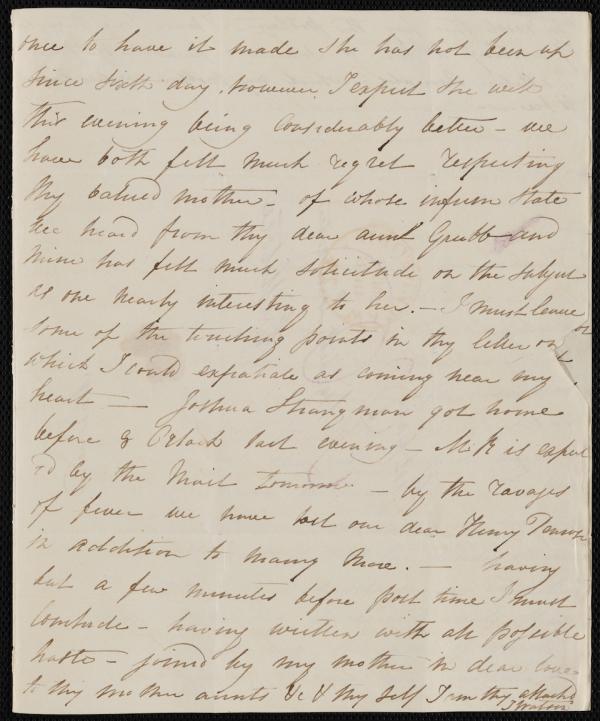 once to have it made she has not been up
since sixth day. however I expect she will
this evening being considerably better - we
have both felt much regret respecting
thy valued mother - of whose infirm state
we heard from thy dear aunt Grubb and
mine has felt much solicitude on the subject
as one nearly interesting to her. - I must leave
some of the touching points in thy letter on
which I could expatiate as coming near my
heart - Joshua Strangman got home
before 8 OClock last evening - M R is expect
ed by the Mail tomorrow - by the ravages
of fever we have lost our dear Henry
in addition to many more. - having
but a few minutes before post time I must
Conclude - having written with all possible
haste - joined by my mother in dear love
to thy mother aunts &c & thy self I am thy attached
J Watson